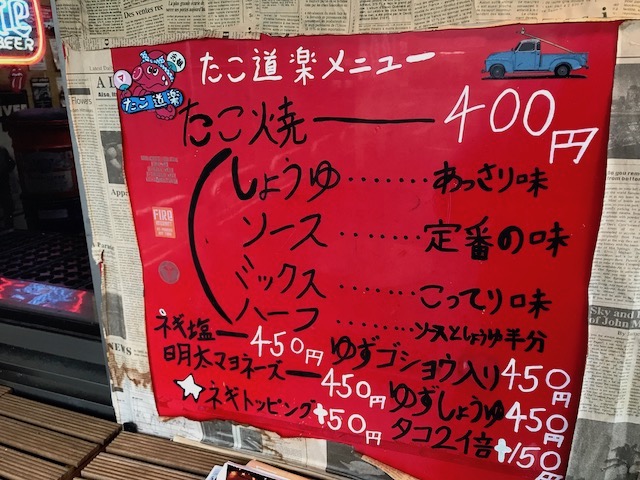 BEER
たこ道楽
たこ道楽メニュー
たこ焼 400円
しょうゆ……あっさり味
ソース……定番の味
ミックス……こってり味
ハーフ……ソースとしょうゆ半分
ネギ塩 450円
ゆずゴショウ入り 450円
明太マヨネーズ 450円
ゆずしょうゆ 450円
☆ネギトッピング +50円
タコ2倍 +150円
Flowers
NEWS
Sky and
of John M